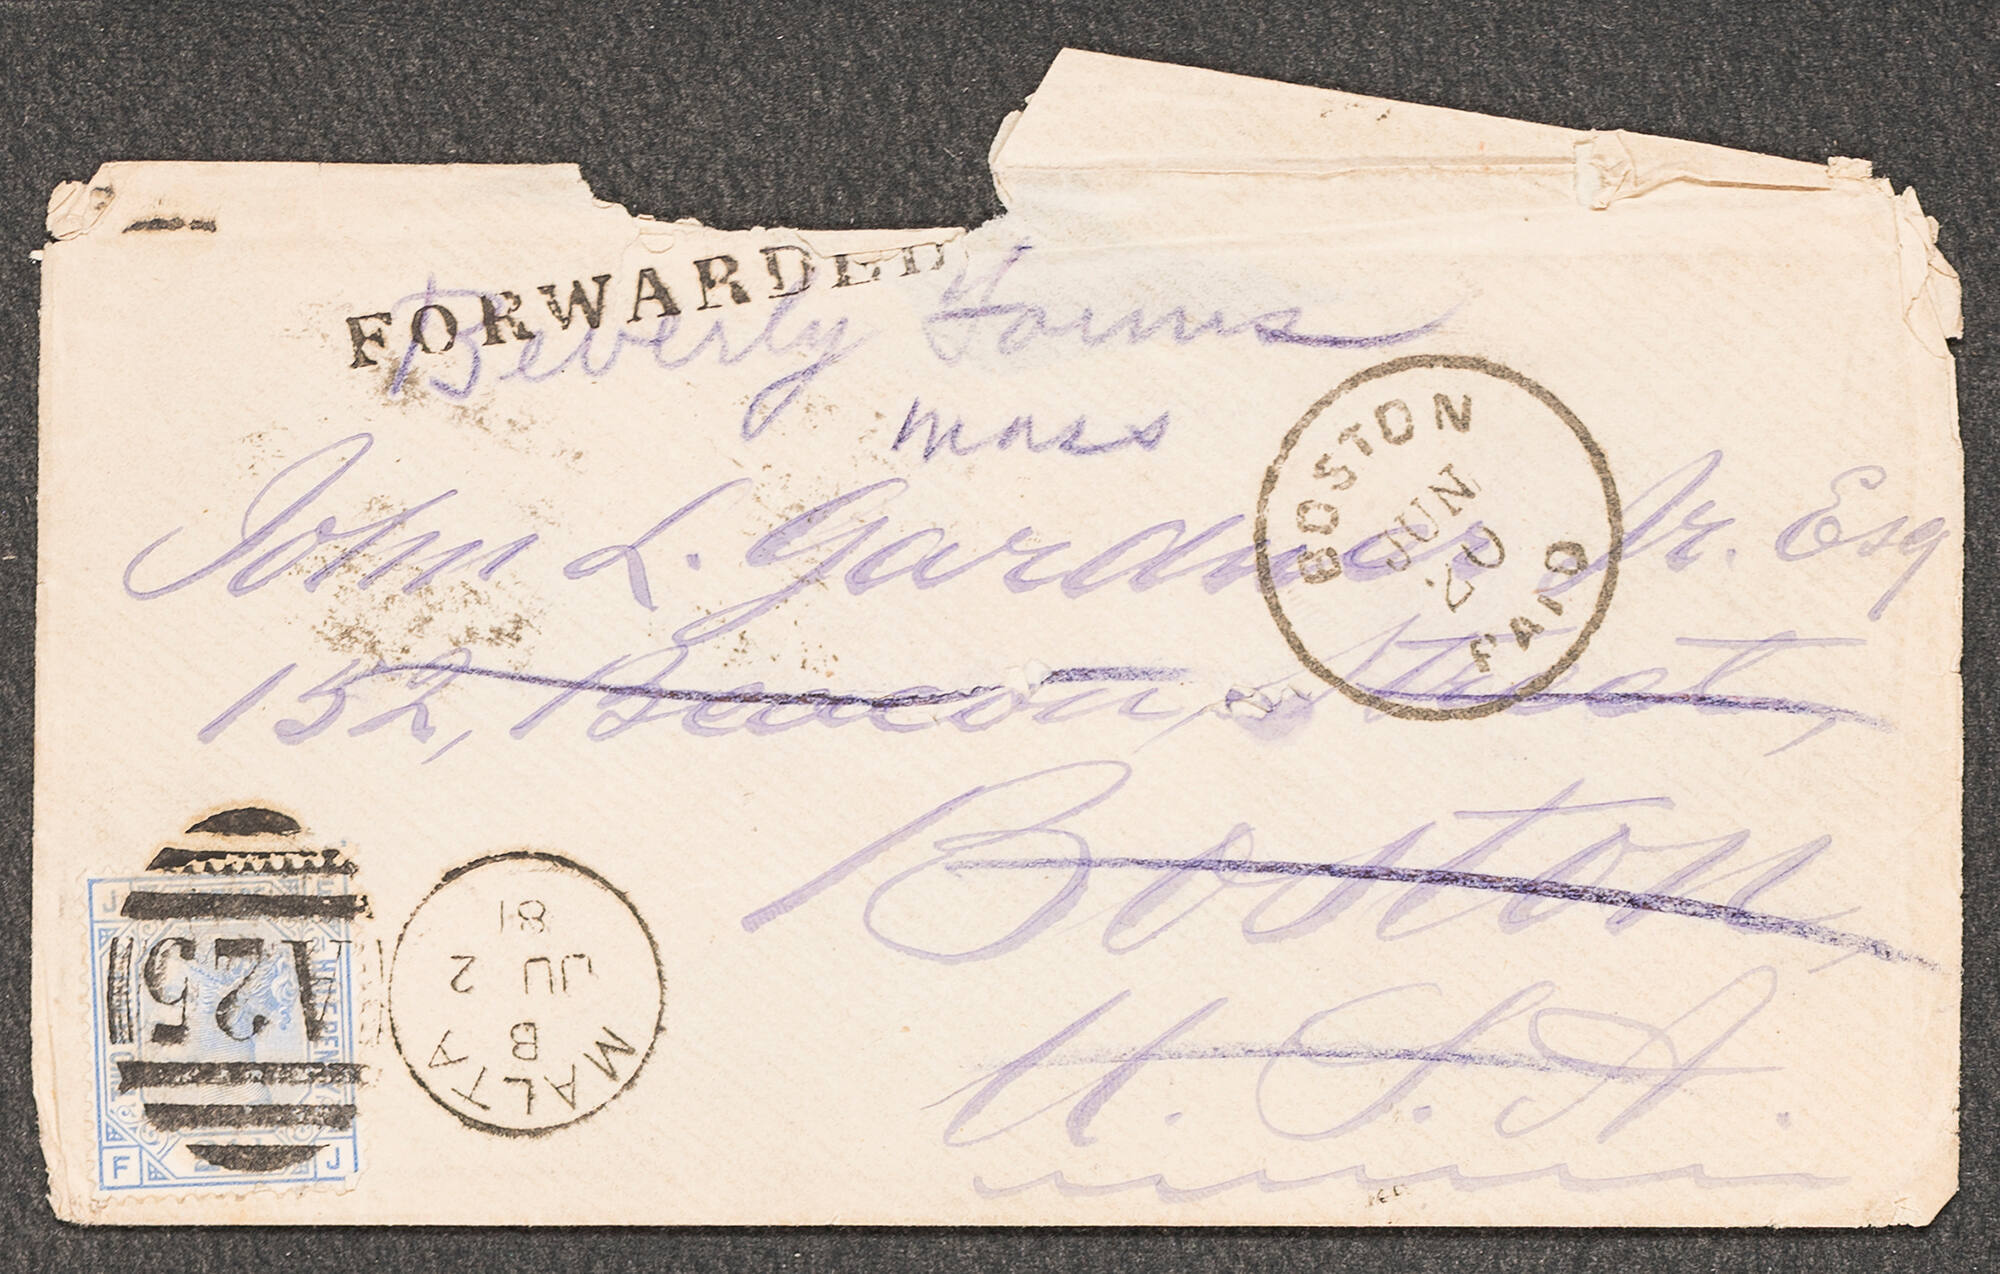 FORWARDED
Beverly Farms
Mass
John L. Gardner Jr. Esq
152, Beacon Street,
Boston,
U. S. A.
BOSTON
JUN
20
PAID
A25
MALTA
B
JU 2
81
HALFPENNY
J
F
F
J